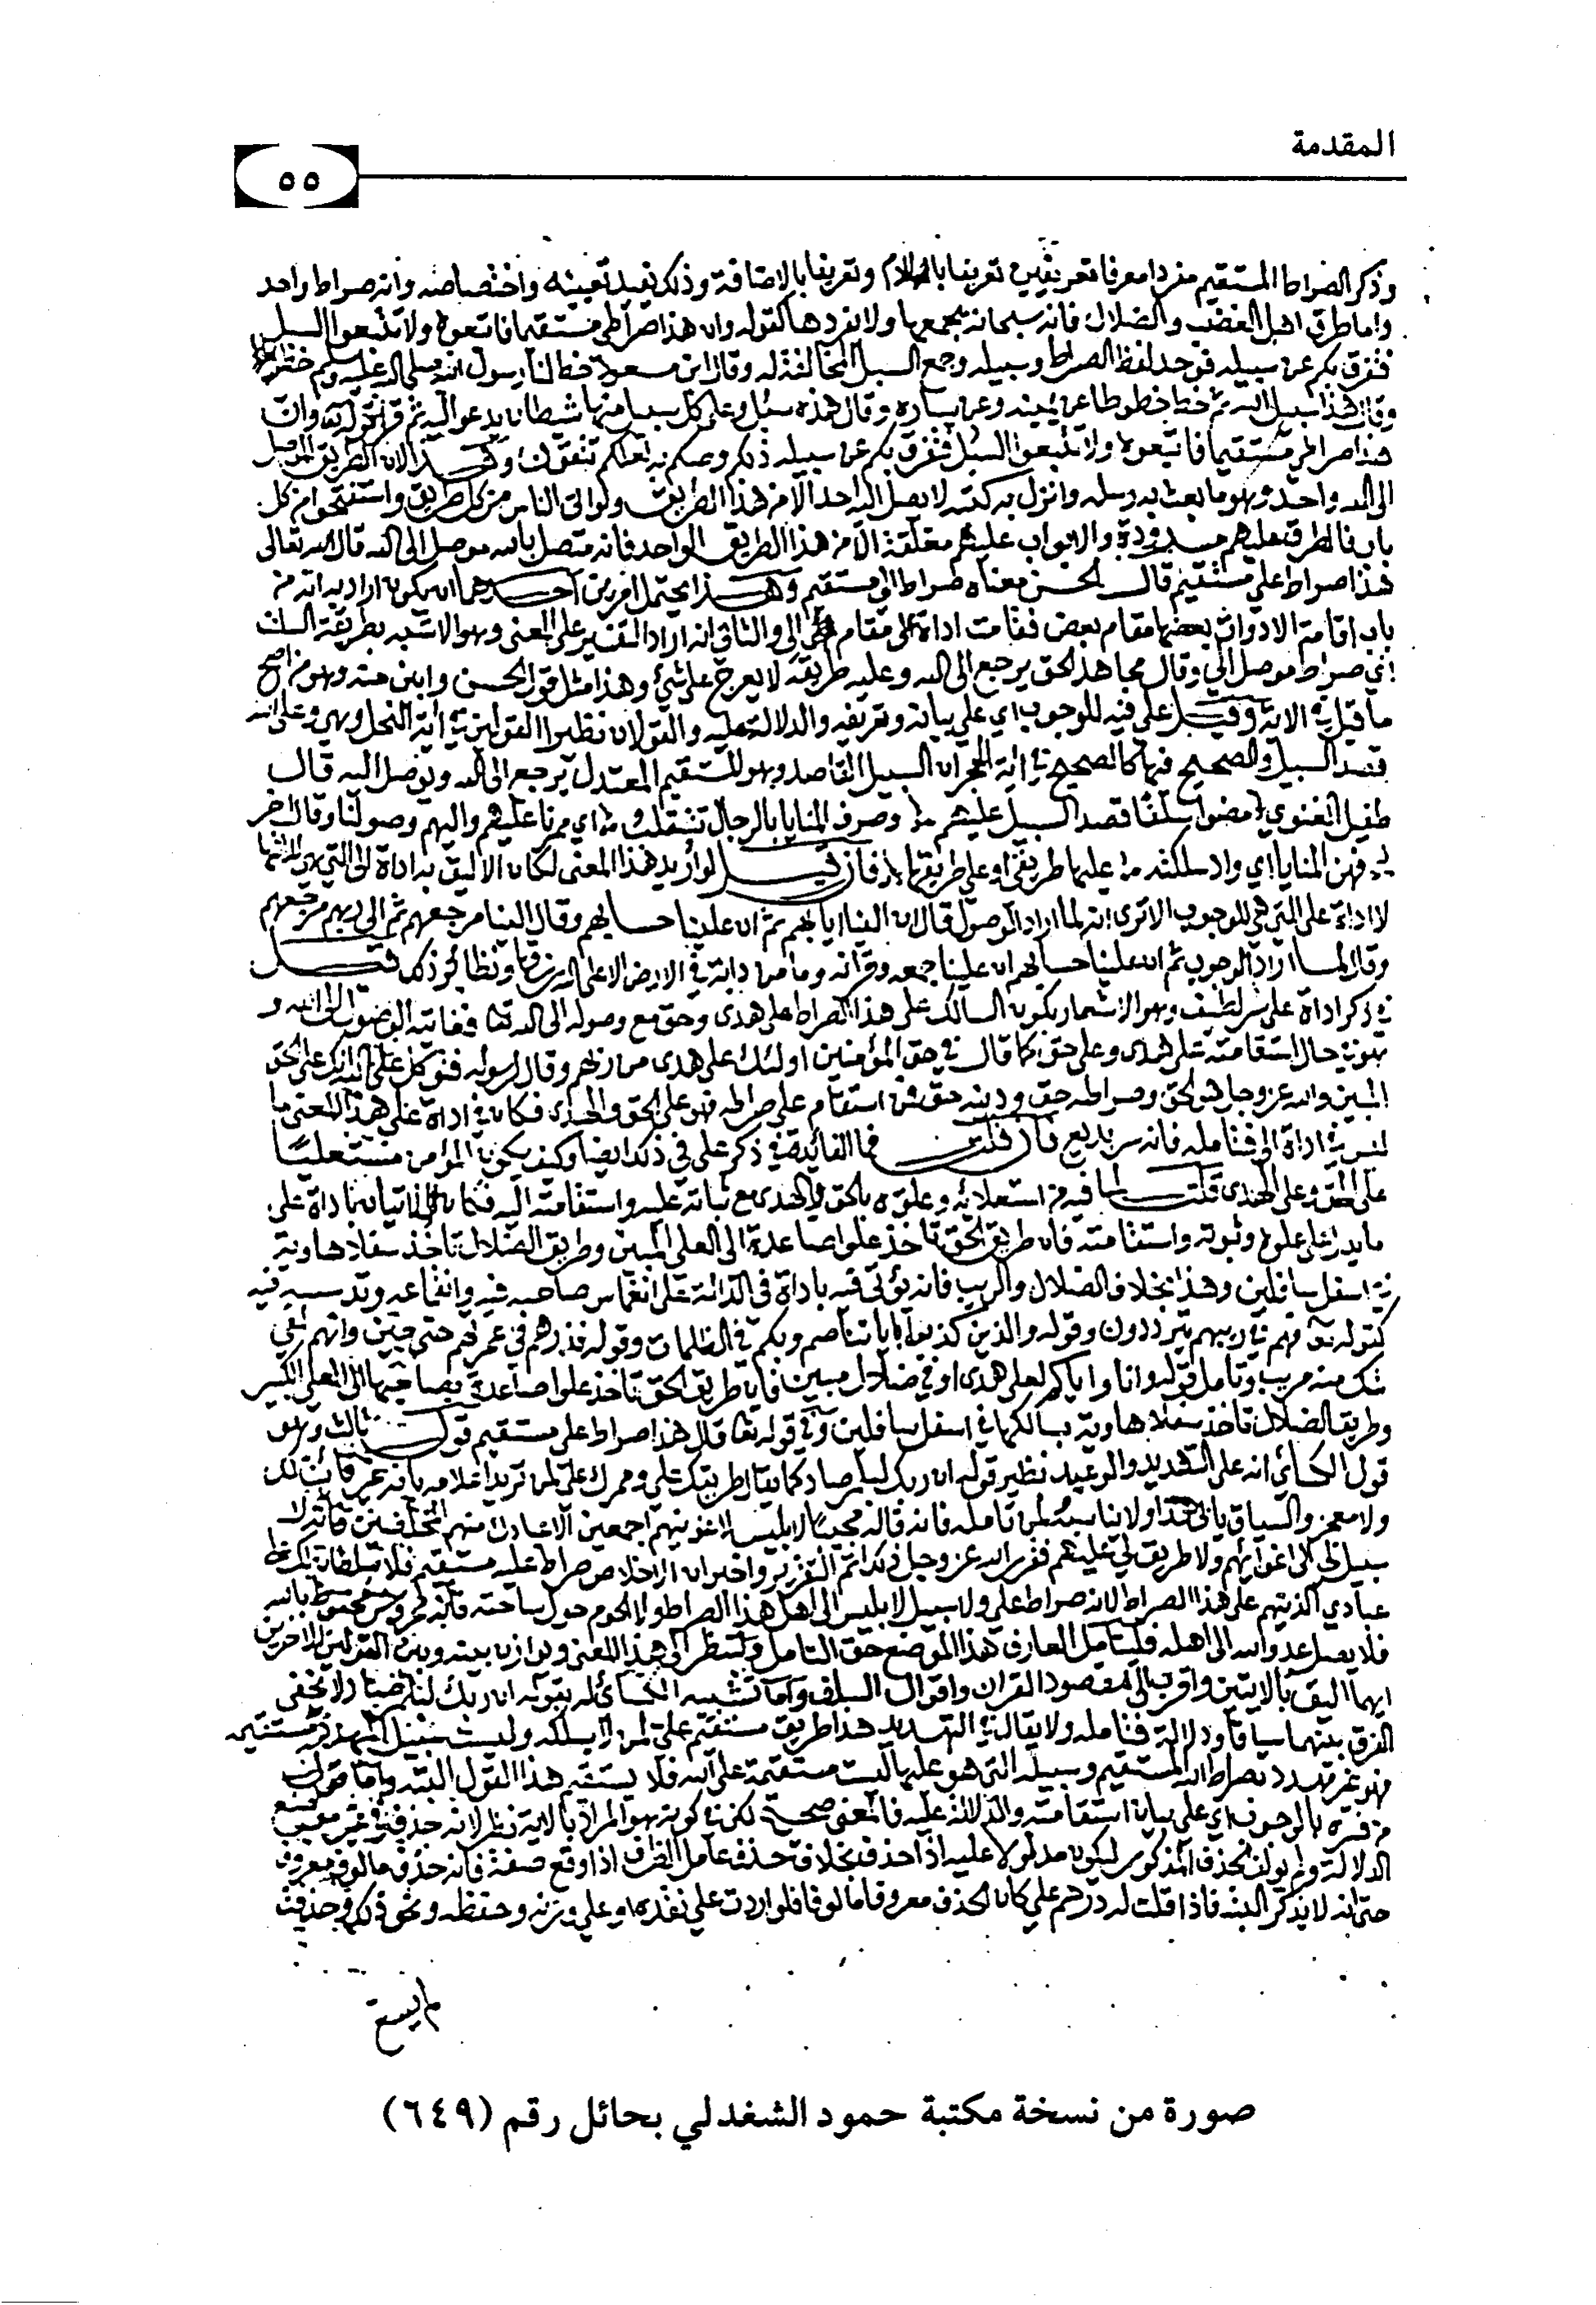 المقدمة
٥٥
وذكر الصراط المستقيم منفردا معرفا تعريفين تعريفا باللام وتعريفا بالاضافة وذلك يفيد تعيينه واختصاصه وانه صراط واحد
واما طرق اهل الغضب والضلال فانه سبحانه يجمعها ولا يفردها كقوله وان هذا صراطي مستقيما فاتبعوه ولا تتبعوا السبل
فتفرق بكم عن سبيله فوحد لفظ الصراط وسبيله وجمع السبل المخالفة له وقال ابن مسعود خط لنا رسول الله صلى الله عليه وسلم خطا
وقال هذا سبيل الله ثم خط خطوطا عن يمينه وعن يساره وقال هذه سبل وعلى كل سبيل منها شيطان يدعو اليه ثم قرا قوله وان
هذا صراطي مستقيما فاتبعوه ولا تتبعوا السبل فتفرق بكم عن سبيله ذلكم وصاكم به لعلكم تتقون وهذا لان الطريق الموصل
الى الله واحد وهو ما بعث به رسله وانزل به كتبه لا يصل اليه احد الا من هذا الطريق ولو اتى الناس من كل طريق واستفتحوا من كل
باب فالطرق عليهم مسدودة والابواب عليهم مغلقة الا من هذا الطريق الواحد فانه متصل بالله موصل الى الله قال الله تعالى
هذا صراط علي مستقيم قال الحسن معناه صراط الي مستقيم وهذا يحتمل امرين احدهما ان يكون اراد به انه من
باب اقامة الادوات بعضها مقام بعض فقامت اداة على مقام الى والثاني انه اراد التفسير على المعنى وهو الاشبه بطريقة السلف
اي صراط موصل الي وقال مجاهد الحق يرجع الى الله وعليه طريقه لا يعرج على شيء وهذا مثل قول الحسن وابين منه وهو من اصح
ما قيل في الاية وقيل علي فيه للوجوب اي علي بيانه وتعريفه والدلالة عليه والقولان نظير القولين في اية النحل وهي وعلى الله
قصد السبيل والصحيح فيها كالصحيح في اية الحجر ان السبيل القاصد وهو المستقيم المعتدل يرجع الى الله ويوصل اليه قال
طفيل الغنوي مضوا سلفا قصد السبيل عليهم وصرف المنايا بالرجال تشقلب اي ممرنا عليهم واليهم وصولنا وقال اخر
فهن المنايا اي واد سلكته عليها طريقي او علي طريقها فان قيل لو اريد هذا المعنى لكان الاليق به اداة الى التي هي للانتها
لا اداة على التي هي للوجوب الا ترى انه لما اراد الوصول قال ان الينا ايابهم ثم ان علينا حسابهم وقال الينا مرجعهم ثم الى ربهم مرجعهم
وقال لما اراد الوجوب ثم ان علينا حسابهم ان علينا جمعه وقرانه وما من دابة في الارض الا على الله رزقها ونظائر ذلك قيل
في ذكر اداة على سر لطيف وهو الاشعار بكون السالك على هذا الصراط على هدى وحق مع وصوله الى الله فغايته الوصول الى الله و
هو في حال استقامته على هدى وعلى حق كما قال في حق المؤمنين اولئك على هدى من ربهم وقال لرسوله فتوكل على الله انك على الحق
المبين والله عز وجل هو الحق وصراطه حق ودينه حق فمن استقام على صراطه فهو على الحق والهدى فكان في اداة على هذا المعنى ما
ليس في اداة الى فتامله فانه سر بديع فان قلت فما الفائدة في ذكر على في ذلك ايضا وكيف يكون المؤمن مستعليا
على الحق وعلى الهدى قلت لما فيه من استعلائه وعلوه بالحق والهدى مع ثباته عليه واستقامته اليه فكان في الاتيان باداة على
ما يدل على علوه وثبوته واستقامته فان طريق الحق تاخذ علوا صاعدة الى العلي المبين وطريق الضلال تاخذ سفلا هاوية
في اسفل سافلين وهذا بخلاف الضلال والريب فانه يؤتى فيه باداة في الدالة على انغماس صاحبه فيه وانقماعه وتدسسه فيه
كقوله فهم في ريبهم يترددون وقوله والذين كذبوا باياتنا صم وبكم في الظلمات وقوله فذرهم في غمرتهم حتى حين وانهم لفي
شك منه مريب وتامل قوله وانا او اياكم لعلى هدى او في ضلال مبين فان طريق الحق تاخذ علوا صاعدة بصاحبها الى العلي الكبير
وطريق الضلال تاخذ سفلا هاوية بسالكها في اسفل سافلين وفي قوله قال هذا صراط علي مستقيم قول ثالث وهو
قول الكسائي انه على التهديد والوعيد نظير قوله ان ربك لبالمرصاد كما يقال طريقك علي وممرك علي لمن تريد اعلامه بانه غير فائت لك
ولا معجز والسياق يابى هذا ولا يناسبه لمن تامله فانه قاله مجيبا لابليس لاغوينهم اجمعين الا عبادك منهم المخلصين فانه لا
سبيل لي الى اغوائهم ولا طريق لي عليهم فقرر الله عز وجل ذلك اتم التقرير واخبر ان الاخلاص صراط عليه مستقيم فلا سلطان لك على
عبادي الذين هم على هذا الصراط لانه صراط علي ولا سبيل لابليس الى اهل هذا الصراط ولا الحوم حول ساحته فانه محروس محفوظ بالله
فلا يصل عدو الله الى اهله فليتامل العارف هذا الموضع حق التامل ولينظر الى هذا المعنى ويوازن بينه وبين القولين الاخرين
ايهما اليق بالايتين واقرب الى مقصود القران واقوال السلف واما تشبيه الكسائي له بقوله ان ربك لبالمرصاد لا يخفى
الفرق بينهما سياقا ودلالة فتامله ولا يقال في التهديد هذا طريق مستقيم علي لمن لا يسلكه وليست سبيل المهدد مستقيمة
فهو غير مهدد بصراط الله المستقيم وسبيله التي هو عليها ليست مستقيمة على الله فلا يستقيم هذا القول البتة واما قول
من فسره بالوجوب اي علي بيان استقامته والدلالة عليه فالمعنى صحيح لكن في كونه هو المراد بالاية نظر لانه حذف في غير موضع
الدلالة ولم يولف الحذف المذكور ليكون مدلولا عليه اذا حذف بخلاف حذف عامل الظرف اذا وقع صفة فانه حذف مالوف معروف
حتى انه لا يذكر البتة فاذا قلت له درهم علي كان الحذف معروفا مالوفا فلو اردت علي نقده او علي وزنه وحفظه ونحو ذلك وحذفت
صورة من نسخة مكتبة حمود الشغدلي بحائل رقم (٦٤٩)